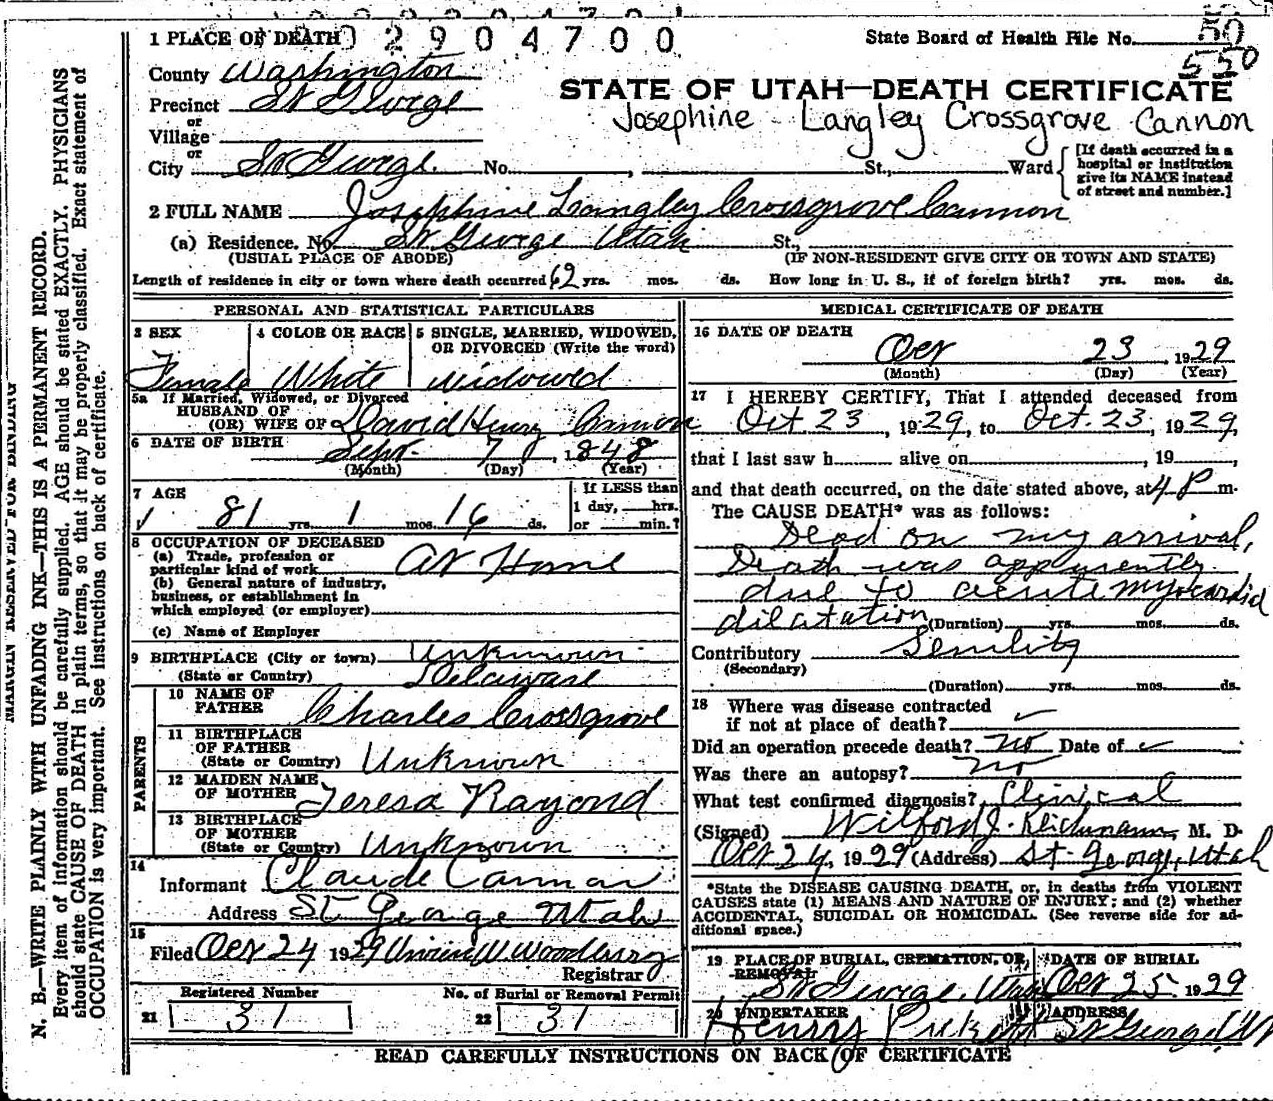 1 PLACE OF DEATH 2904700
State Board of Health File No. 50
550
County Washington
STATE OF UTAH—DEATH CERTIFICATE
Precinct St George
or
Josephine Langley Crossgrove Cannon
Village
or
City St George. No. , St., Ward
[If death occurred in a
hospital or institution
give its NAME instead
of street and number.]
2 FULL NAME Josephine Langley Crossgrove Cannon
(a) Residence. No. St George Utah St.,
(USUAL PLACE OF ABODE) (IF NON-RESIDENT GIVE CITY OR TOWN AND STATE)
Length of residence in city or town where death occurred 62 yrs. mos. ds. How long in U. S., if of foreign birth? yrs. mos. ds.
PERSONAL AND STATISTICAL PARTICULARS
3 SEX
Female
4 COLOR OR RACE
White
5 SINGLE, MARRIED, WIDOWED,
OR DIVORCED (Write the word)
widowed
5a If Married, Widowed, or Divorced
HUSBAND OF
(OR) WIFE OF David Henry Cannon
6 DATE OF BIRTH Sept. 7, 1848
(Month) (Day) (Year)
7 AGE
81 yrs. 1 mos. 16 ds.
If LESS than
1 day, hrs.
or min.?
8 OCCUPATION OF DECEASED
(a) Trade, profession or
particular kind of work At Home
(b) General nature of industry,
business, or establishment in
which employed (or employer)
(c) Name of Employer
9 BIRTHPLACE (City or town) Unknown
(State or Country) Delaware
PARENTS
10 NAME OF
FATHER Charles Crossgrove
11 BIRTHPLACE
OF FATHER
(State or Country) Unknown
12 MAIDEN NAME
OF MOTHER Teresa Raymond
13 BIRTHPLACE
OF MOTHER
(State or Country) Unknown
14
Informant Claude Cannon
Address St George Utah
15
Filed Oct 24 1929 W Woodbury
Registrar
Registered Number
21 31
No. of Burial or Removal Permit
22 31
MEDICAL CERTIFICATE OF DEATH
16 DATE OF DEATH
Oct 23, 1929
(Month) (Day) (Year)
17 I HEREBY CERTIFY, That I attended deceased from
Oct 23, 1929, to Oct. 23, 1929,
that I last saw h alive on , 19 ,
and that death occurred, on the date stated above, at 4 P m.
The CAUSE DEATH* was as follows:
Dead on my arrival,
Death was apparently
due to acute myocardial
dilatation (Duration) yrs. mos. ds.
Contributory Senility
(Secondary)
(Duration) yrs. mos. ds.
18 Where was disease contracted
if not at place of death?
Did an operation precede death? no Date of
Was there an autopsy? no
What test confirmed diagnosis? Clinical
(Signed) Wilford J. Reichmann, M. D.
Oct 24, 1929 (Address) St. George, Utah
*State the DISEASE CAUSING DEATH, or, in deaths from VIOLENT
CAUSES state (1) MEANS AND NATURE OF INJURY; and (2) whether
ACCIDENTAL, SUICIDAL OR HOMICIDAL. (See reverse side for ad-
ditional space.)
19 PLACE OF BURIAL, CREMATION, OR
REMOVAL
St George, Utah
DATE OF BURIAL
Oct 25 1929
20 UNDERTAKER
Henry Pickett
ADDRESS
St George Ut
READ CAREFULLY INSTRUCTIONS ON BACK OF CERTIFICATE
MARGIN RESERVED FOR BINDING
N. B.—WRITE PLAINLY WITH UNFADING INK—THIS IS A PERMANENT RECORD.
Every item of information should be carefully supplied. AGE should be stated EXACTLY. PHYSICIANS
should state CAUSE OF DEATH in plain terms, so that it may be properly classified. Exact statement of
OCCUPATION is very important. See instructions on back of certificate.